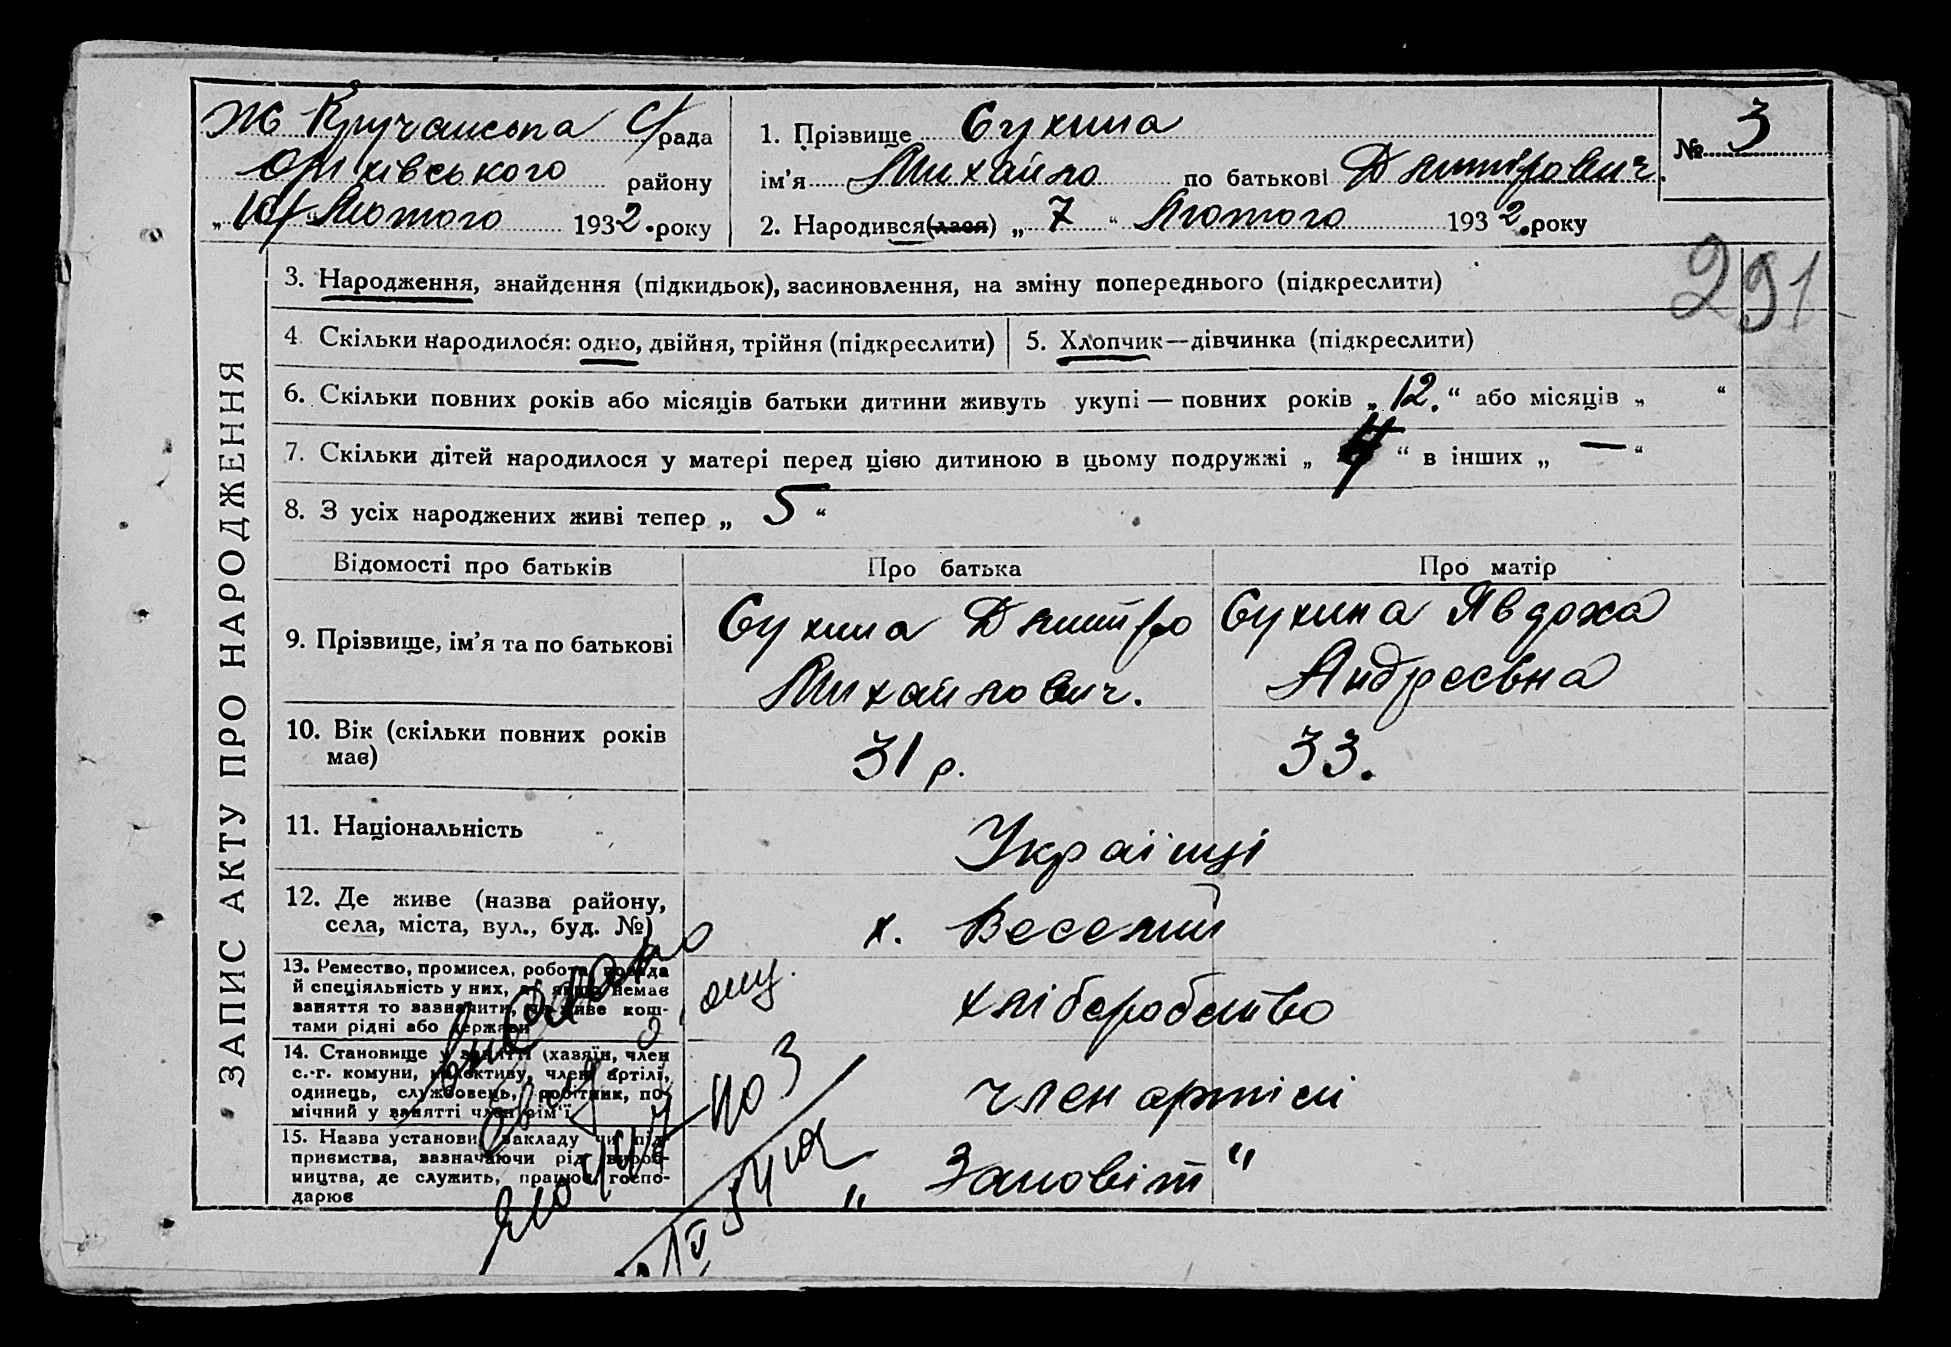 Ж Кручанська с/рада
Оріхівського району
„10/“ Лютого 1932. року
1. Прізвище Сухина
ім'я Михайло по батькові Дмитрович.
2. Народився(лася) „7“ Лютого 1932. року
№ 3
291
ЗАПИС АКТУ ПРО НАРОДЖЕННЯ
3. Народження, знайдення (підкидьок), засиновлення, на зміну попереднього (підкреслити)
4. Скільки народилося: одно, двійня, трійня (підкреслити)
5. Хлопчик—дівчинка (підкреслити)
6. Скільки повних років або місяців батьки дитини живуть укупі — повних років „12.“ або місяців „ “
7. Скільки дітей народилося у матері перед цією дитиною в цьому подружжі „4“ в інших „—“
8. З усіх народжених живі тепер „5“
Відомості про батьків Про батька Про матір
9. Прізвище, ім'я та по батькові
Сухина Дмитро
Михайлович.
Сухина Явдоха
Андреєвна
10. Вік (скільки повних років
має)
31 р.
33.
11. Національність
Українці
12. Де живе (назва району,
села, міста, вул., буд. №)
х. Веселий
13. Ремество, промисел, робота, посада
й спеціяльність у них, а якщо немає
заняття то зазначити, чи живе кош-
тами рідні або держави
хліборобство
14. Становище у занятті (хазяїн, член
с.-г. комуни, колективу, член артілі,
одинець, службовець, робітник, по-
мічний у занятті член сім'ї
член артілі
15. Назва установи, закладу чи під-
приємства, зазначаючи рід вироб-
ництва, де служить, працює, госпо-
дарює
„Заповіт“